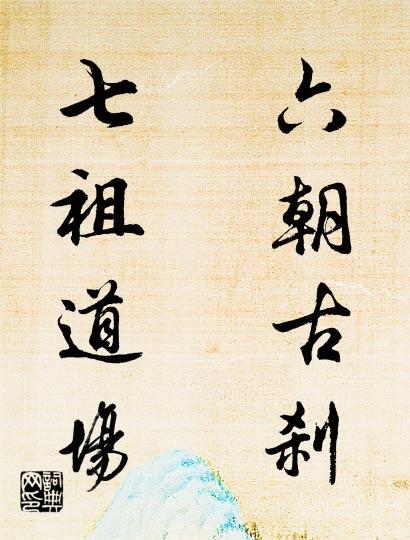 六朝古刹
七祖道場
詞典網印